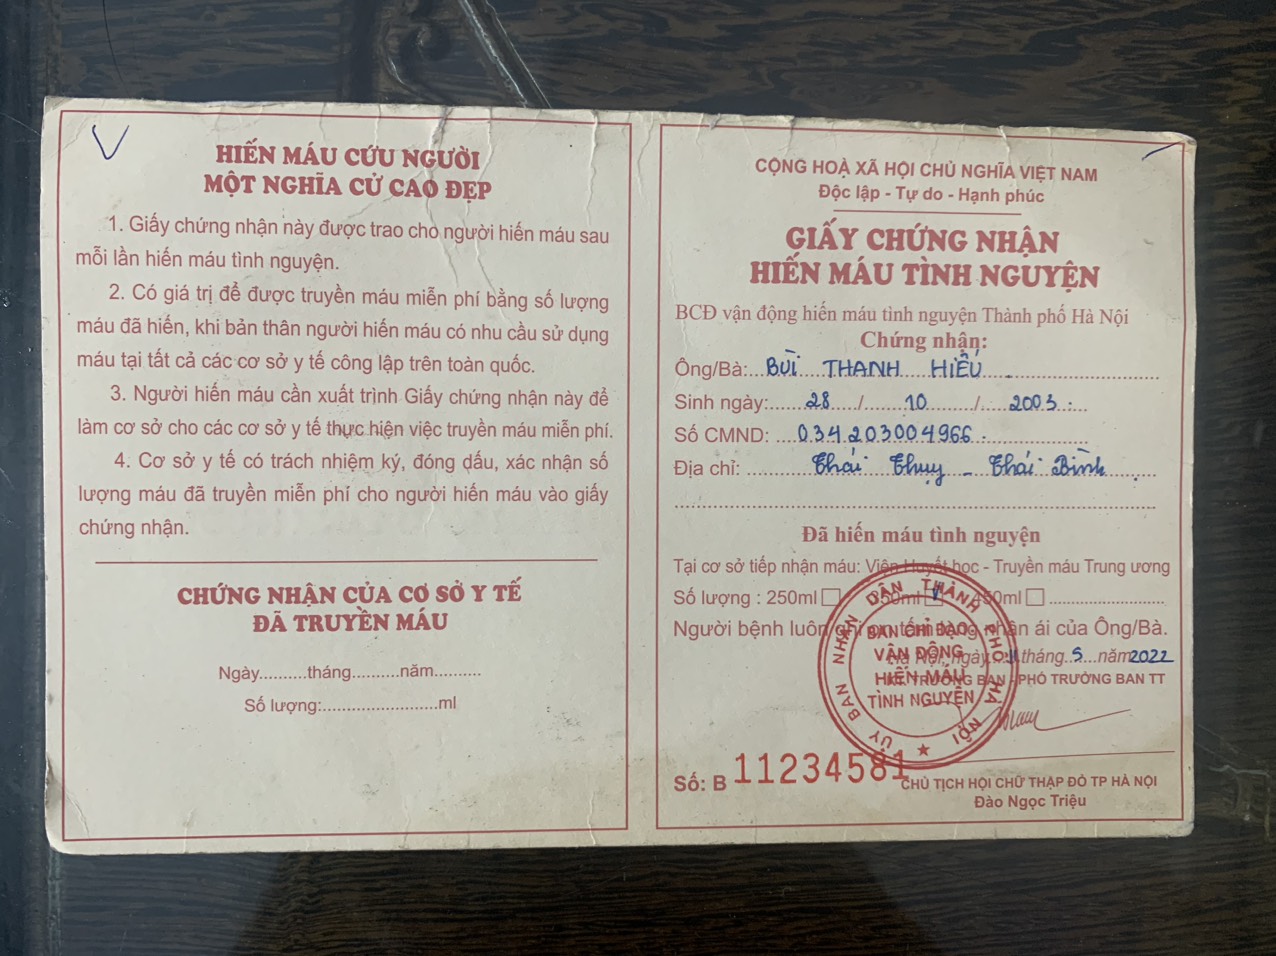 HIẾN MÁU CỨU NGƯỜI
MỘT NGHĨA CỬ CAO ĐẸP
1. Giấy chứng nhận này được trao cho người hiến máu sau
mỗi lần hiến máu tình nguyện.
2. Có giá trị để được truyền máu miễn phí bằng số lượng
máu đã hiến, khi bản thân người hiến máu có nhu cầu sử dụng
máu tại tất cả các cơ sở y tế công lập trên toàn quốc.
3. Người hiến máu cần xuất trình Giấy chứng nhận này để
làm cơ sở cho các cơ sở y tế thực hiện việc truyền máu miễn phí.
4. Cơ sở y tế có trách nhiệm ký, đóng dấu, xác nhận số
lượng máu đã truyền miễn phí cho người hiến máu vào giấy
chứng nhận.
CHỨNG NHẬN CỦA CƠ SỞ Y TẾ
ĐÃ TRUYỀN MÁU
Ngày..........tháng..........năm..........
Số lượng:.......................ml
CỘNG HOÀ XÃ HỘI CHỦ NGHĨA VIỆT NAM
Độc lập - Tự do - Hạnh phúc
GIẤY CHỨNG NHẬN
HIẾN MÁU TÌNH NGUYỆN
BCĐ vận động hiến máu tình nguyện Thành phố Hà Nội
Chứng nhận:
Ông/Bà: BÙI THANH HIẾU
Sinh ngày: 28 / 10 / 2003
Số CMND: 034203004966
Địa chỉ: Thái Thụy - Thái Bình
Đã hiến máu tình nguyện
Tại cơ sở tiếp nhận máu: Viện Huyết học - Truyền máu Trung ương
Số lượng : 250ml 350ml 450ml
Người bệnh luôn ghi ơn tấm lòng nhân ái của Ông/Bà.
Hà Nội, ngày 11 tháng 5 năm 2022
KT. TRƯỞNG BAN - PHÓ TRƯỞNG BAN TT
ỦY BAN NHÂN DÂN THÀNH PHỐ HÀ NỘI
BAN CHỈ ĐẠO
VẬN ĐỘNG
HIẾN MÁU
TÌNH NGUYỆN
Số: B 11234581
CHỦ TỊCH HỘI CHỮ THẬP ĐỎ TP HÀ NỘI
Đào Ngọc Triệu